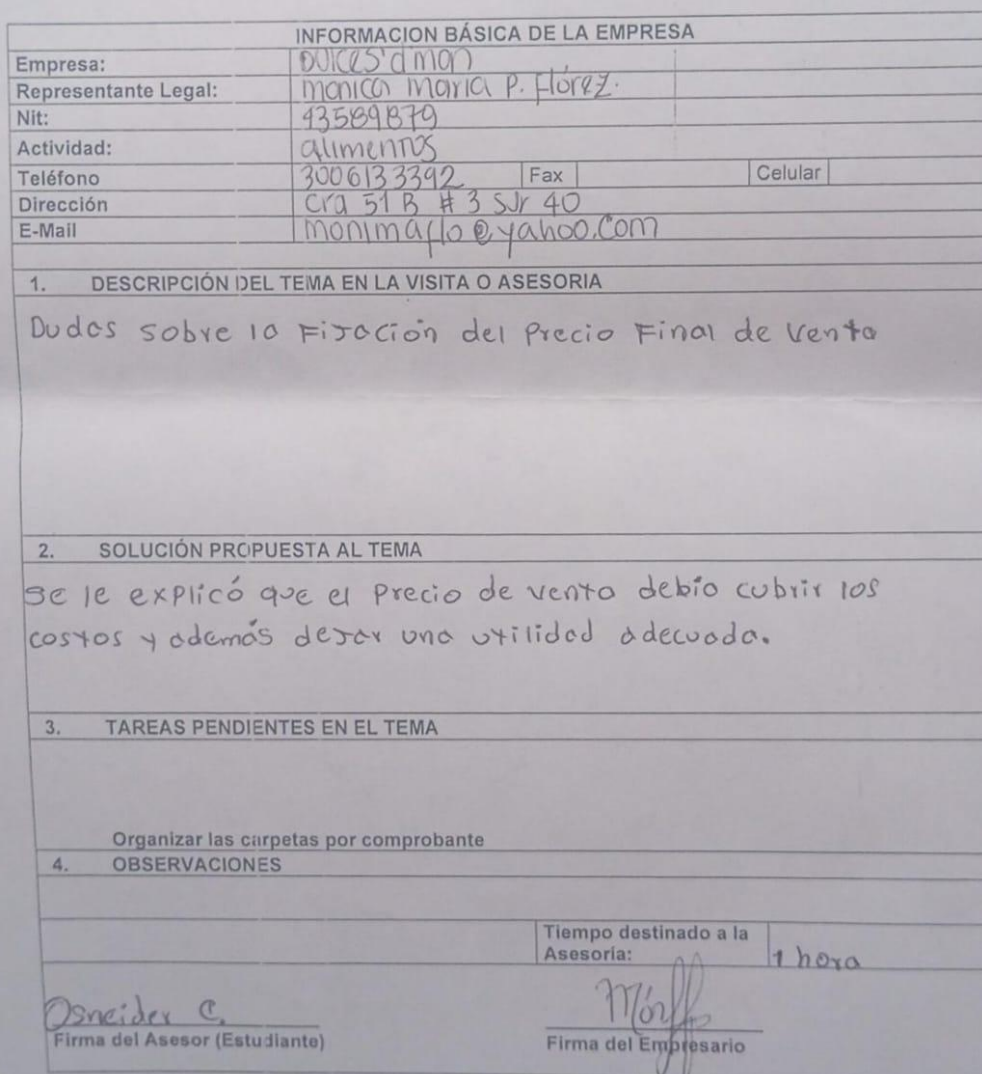 INFORMACION BÁSICA DE LA EMPRESA
Empresa: Dulces'd mon
Representante Legal: monica maria P. Flórez.
Nit: 43589879
Actividad: alimentos
Teléfono 3006133392 Fax Celular
Dirección cra 51 B # 3 sur 40
E-Mail monimaflo@yahoo.com
1. DESCRIPCIÓN DEL TEMA EN LA VISITA O ASESORIA
Dudas sobre la Fijación del Precio Final de Venta
2. SOLUCIÓN PROPUESTA AL TEMA
se le explicó que el Precio de venta debía cubrir los
costos y además dejar una utilidad adecuada.
3. TAREAS PENDIENTES EN EL TEMA
Organizar las carpetas por comprobante
4. OBSERVACIONES
Tiempo destinado a la
Asesoría: 1 hora
Osneider C.
Firma del Asesor (Estudiante) Firma del Empresario